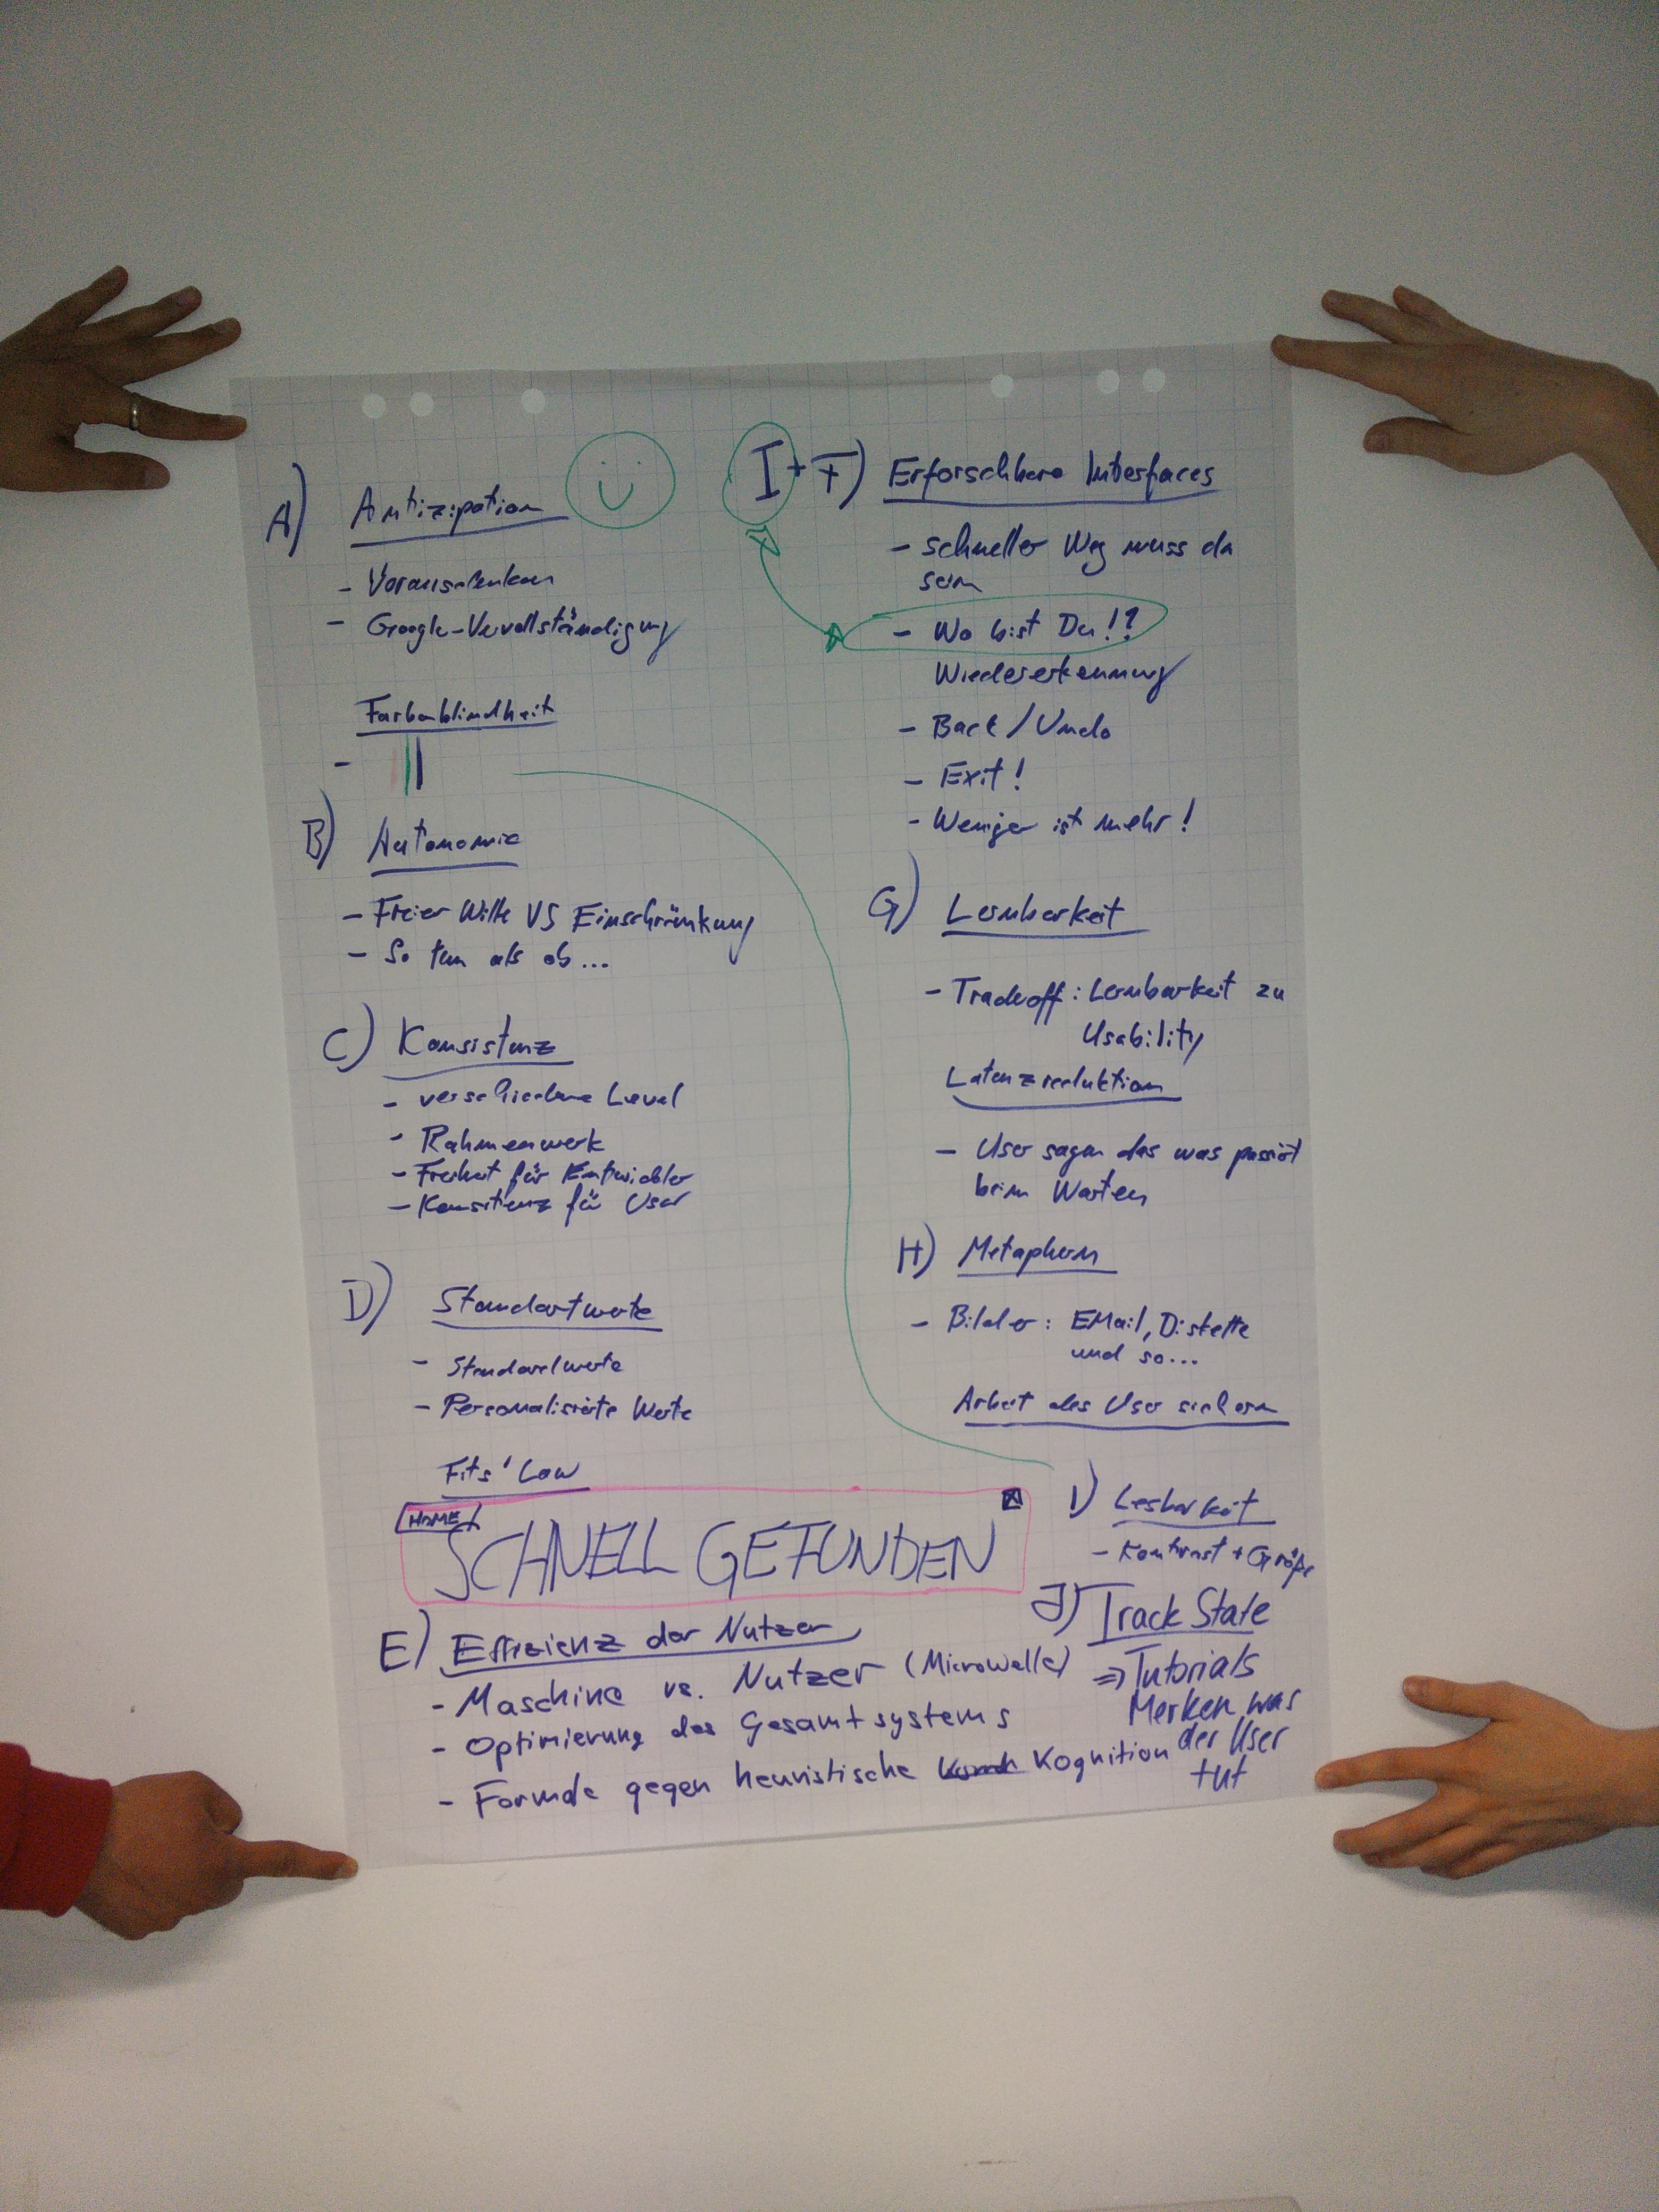 A) Antizipation
- Vorausdenken
- Google-Vervollständigung
Farbenblindheit
-
B) Autonomie
- Freier Wille VS Einschränkung
- So tun als ob...
C) Konsistenz
- verschiedene Level
- Rahmenwerk
- Freiheit für Entwickler
- Konsitenz für User
D) Standartwerte
- Standardwerte
- Personalisierte Werte
Fits' Law
HOME
SCHNELL GEFUNDEN
E) Effizienz der Nutzer
- Maschine vs. Nutzer (Microwelle)
- Optimierung des Gesamtsystems
- Formale gegen heuristische Kognition
I + F) Erforschbare Interfaces
- schneller Weg muss da
sein
- Wo bist Du!?
Wiedererkennung
- Back / Undo
- Exit!
- Weniger ist mehr!
G) Lernbarkeit
- Tradeoff: Lernbarkeit zu
Usability
Latenzreduktion
- User sagen das was passiert
beim Warten
H) Metaphern
- Bilder: EMail, Diskette
und so...
Arbeit des User sichern
I) Lesbarkeit
- Kontrast + Größe
J) Track State
=> Tutorials
Merken was
der User
tut